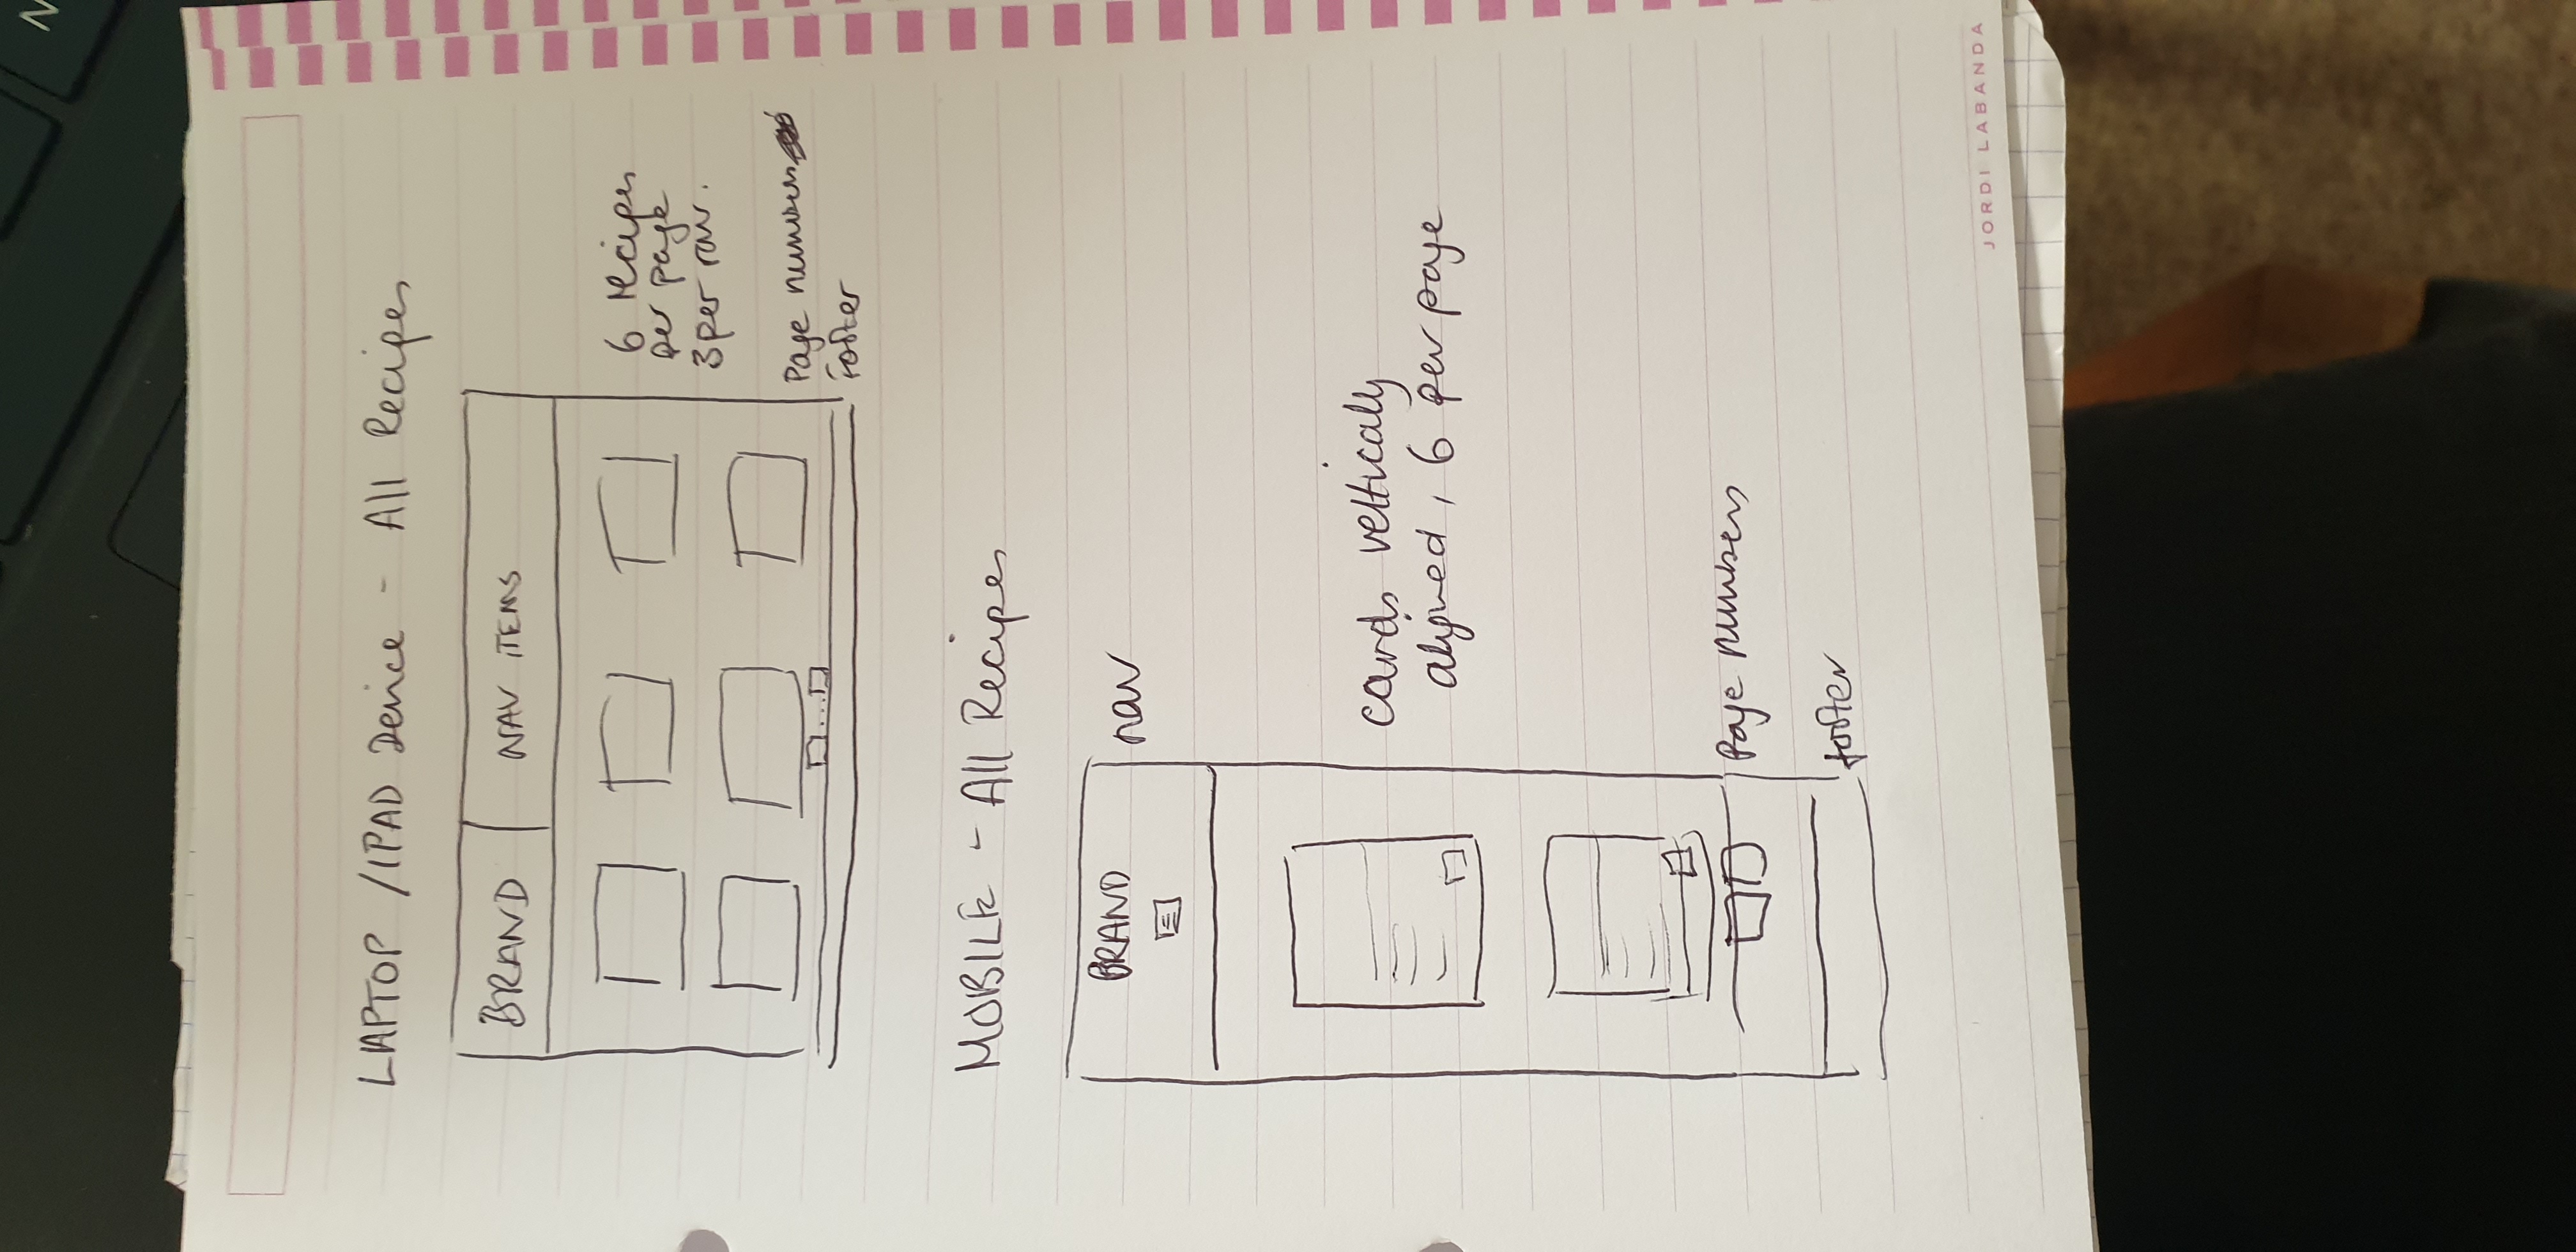 LAPTOP / IPAD Device - All Recipes
BRAND
NAV ITEMS
6 recipes
per page
3 per row.
Page numbers
Footer
MOBILE - All Recipes
BRAND
nav
cards vertically
aligned, 6 per page
Page numbers
footer
JORDI LABANDA
N